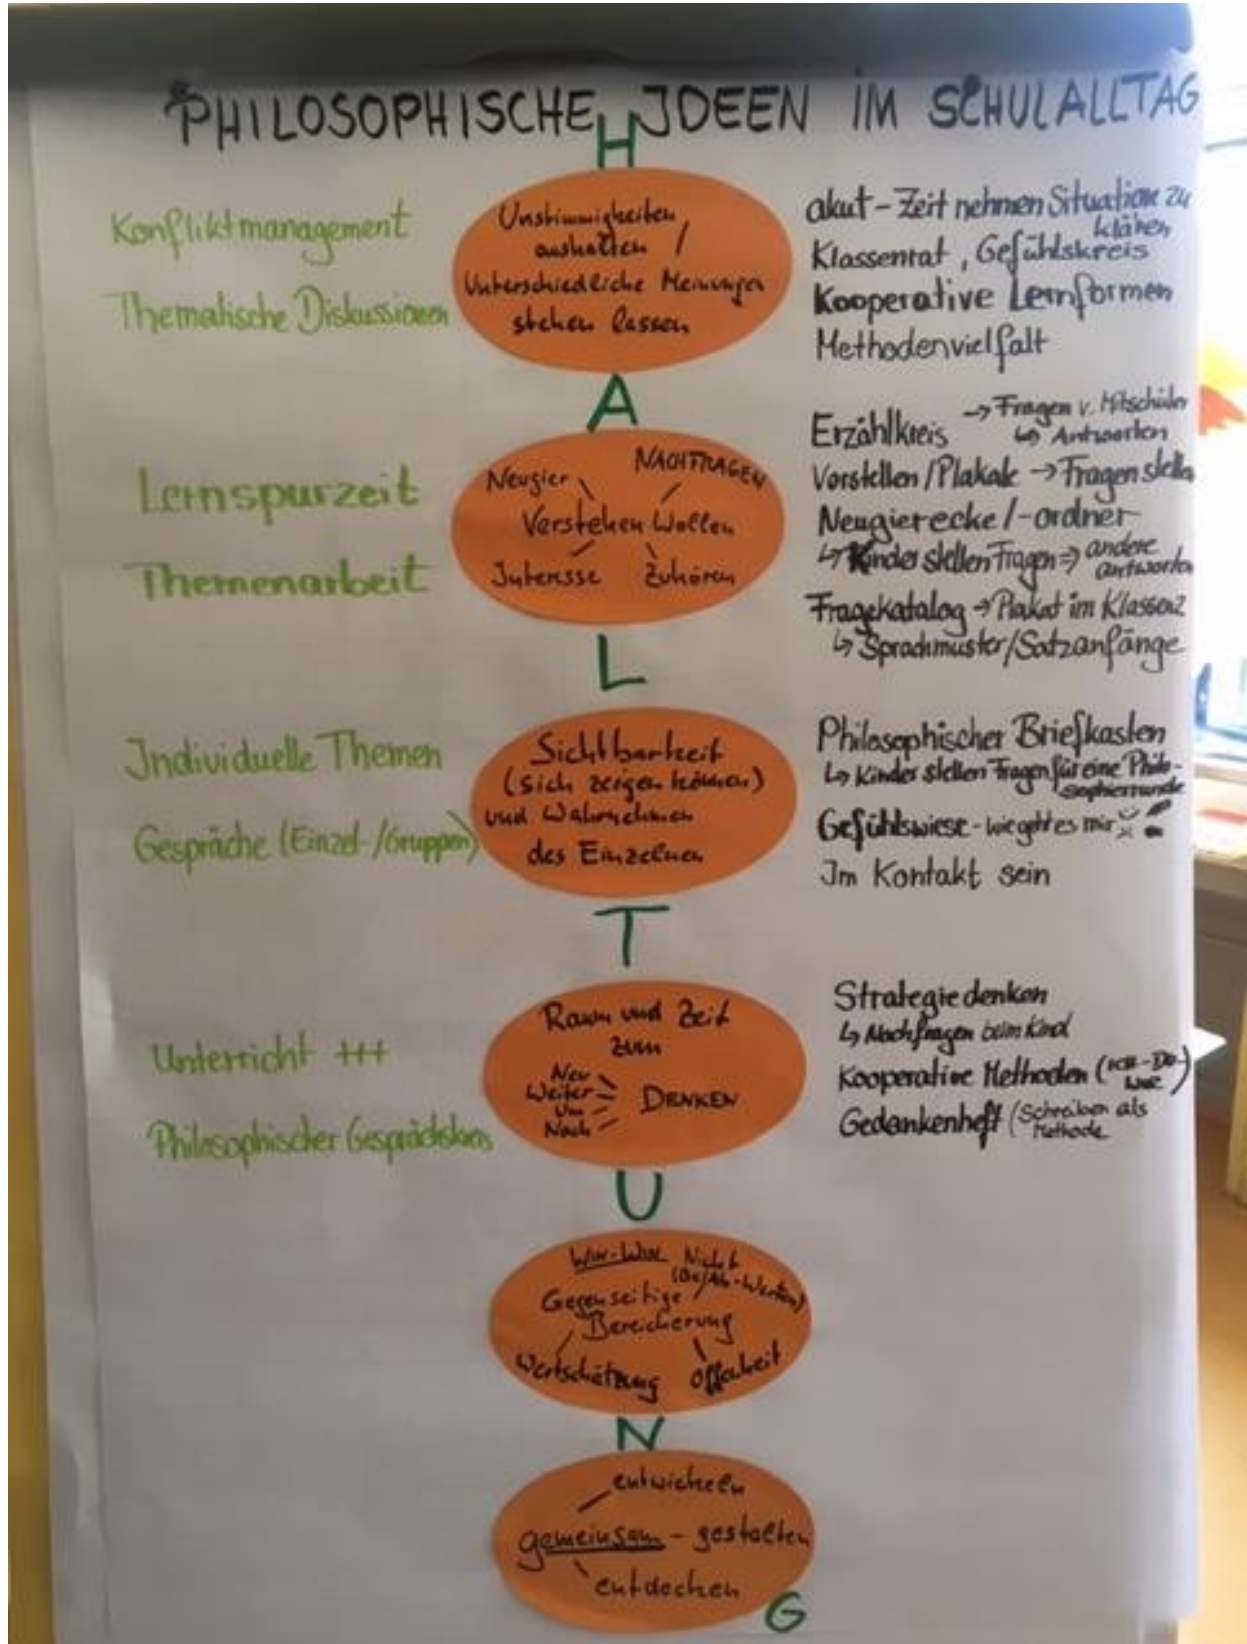 PHILOSOPHISCHE IDEEN IM SCHULALLTAG
H
Konfliktmanagement
Thematische Diskussionen
Unstimmigkeiten
aushalten /
Unterschiedliche Meinungen
stehen lassen
akut - Zeit nehmen Situation zu
klären
Klassenrat, Gefühlskreis
Kooperative Lernformen
Methodenvielfalt
A
Lernspurzeit
Themenarbeit
Neugier NACHFRAGEN
Verstehen Wollen
Interesse Zuhören
Erzählkreis → Fragen v. Mitschüler
↳ Antworten
Vorstellen/Plakate → Fragen stellen
Neugierecke/-ordner
↳ Kinder stellen Fragen ⇒ andere
antworten
Fragekatalog → Plakat im Klassenz
↳ Sprachmuster/Satzanfänge
L
Individuelle Themen
Gespräche (Einzel-/Gruppen)
Sichtbarkeit
(Sich zeigen können)
und Wahrnehmen
des Einzelnen
Philosophischer Briefkasten
↳ Kinder stellen Fragen für eine Philo-
sophierrunde
Gefühlswiese - wie geht es mir
Im Kontakt sein
T
Unterricht +++
Philosophischer Gesprächskreis
Raum und Zeit
zum
Neu
Weiter
Um
Nach
DENKEN
Strategie denken
↳ Nachfragen beim Kind
Kooperative Methoden (ICH-DU-
WIR)
Gedankenheft (Schreiben als
Methode
U
Win-Win Nicht
(Be/Ab-Werten)
Gegenseitige
Bereicherung
Wertschätzung Offenheit
N
entwickeln
gemeinsam - gestalten
entdecken
G